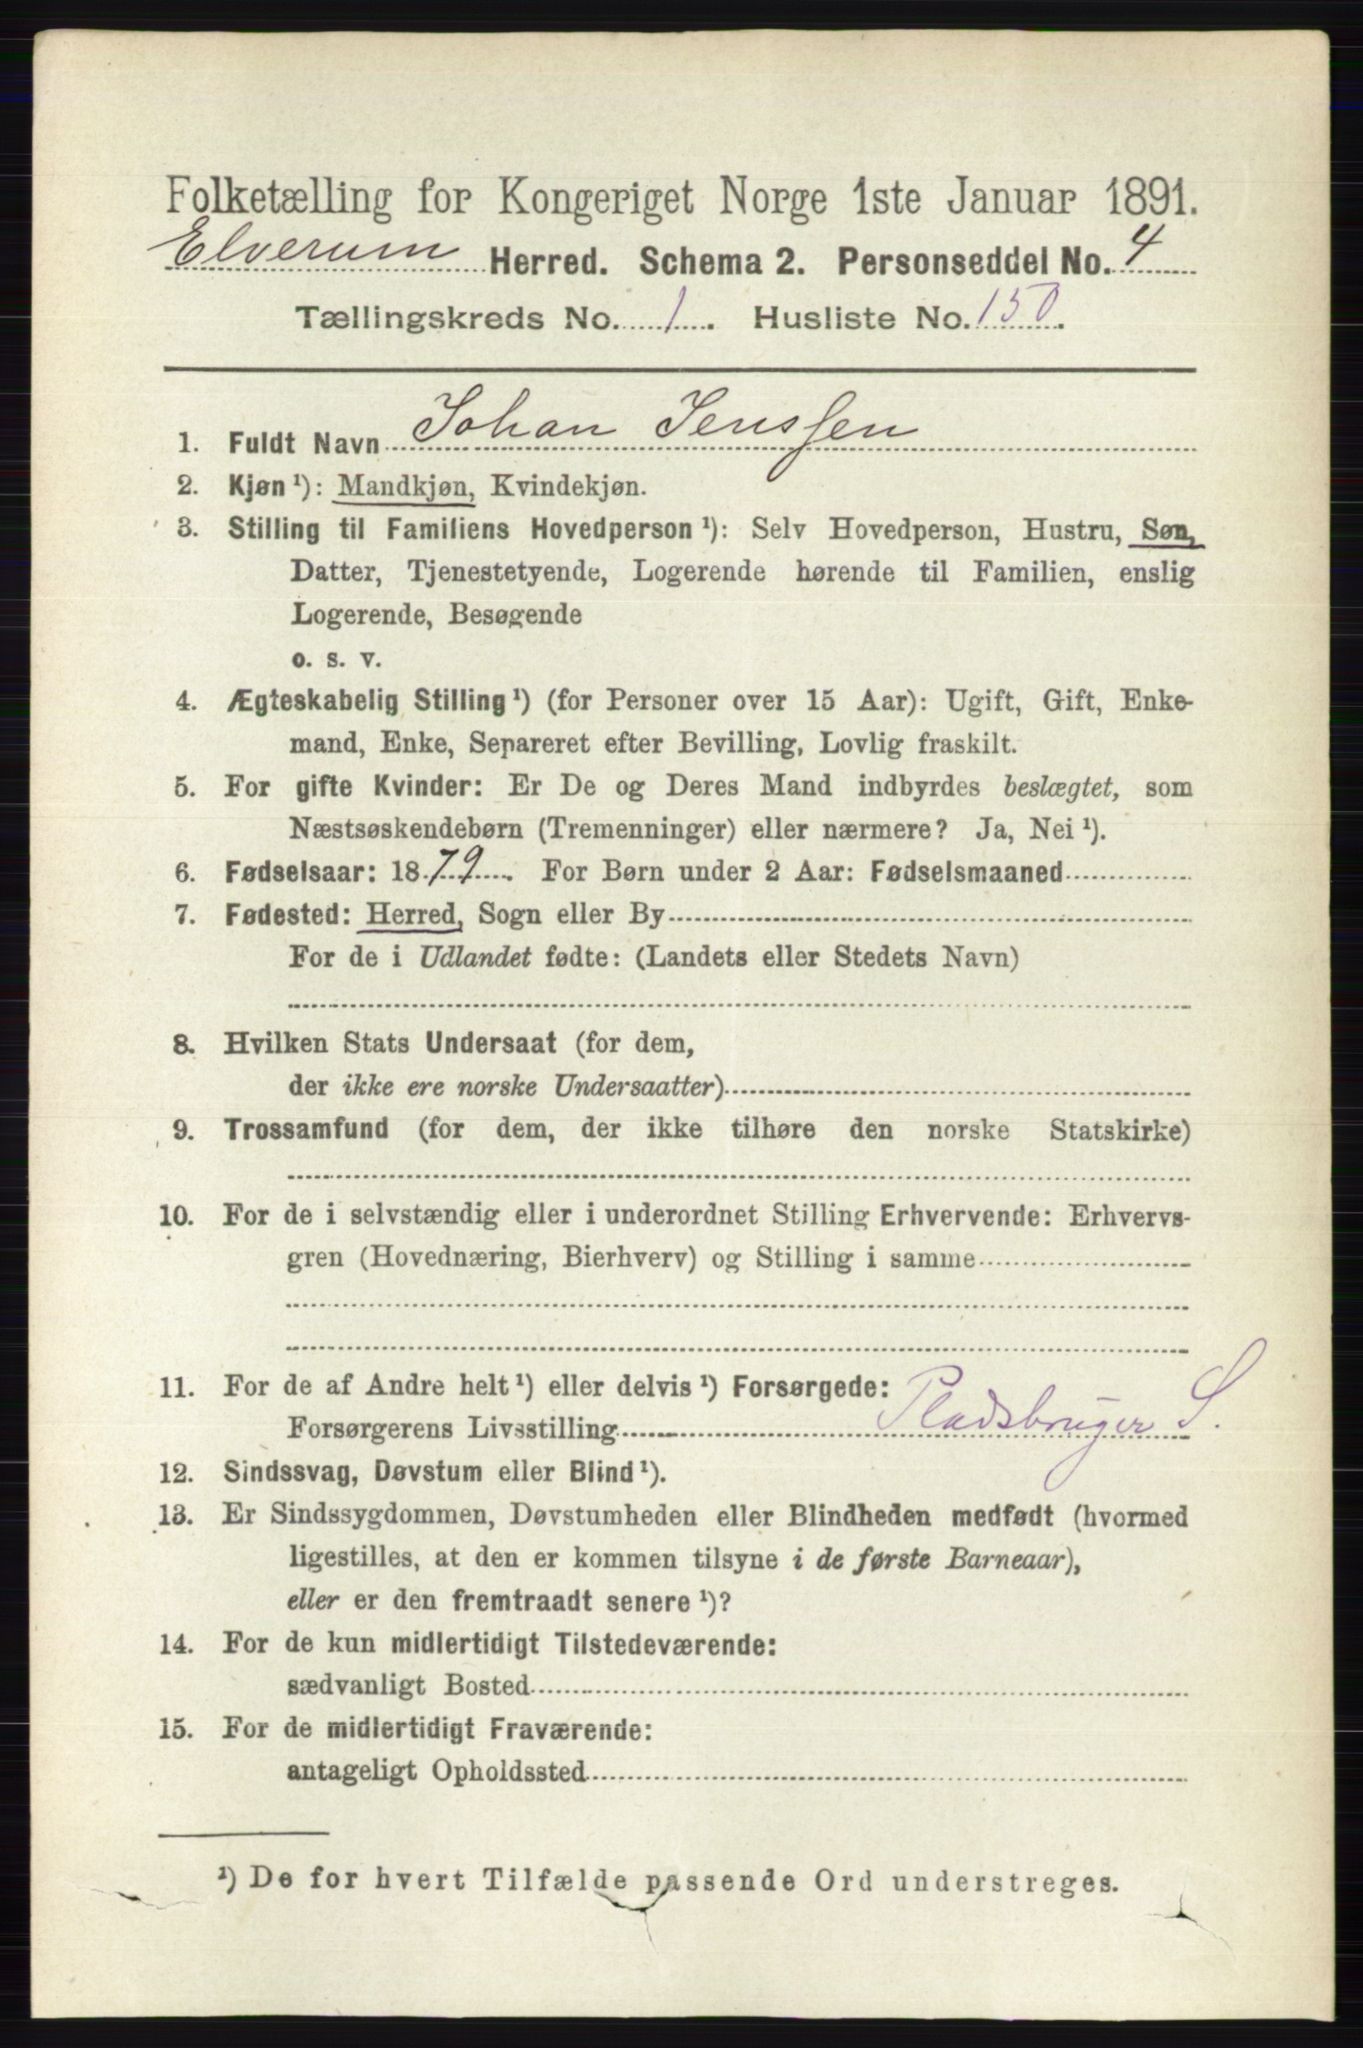 Folketælling for Kongeriget Norge 1ste Januar 1891.
Elverum Herred. Schema 2. Personseddel No. 4
Tællingskreds No. 1. Husliste No. 150.
1. Fuldt Navn Johan Jenssen
2. Kjøn¹): Mandkjøn, Kvindekjøn.
3. Stilling til Familiens Hovedperson¹): Selv Hovedperson, Hustru, Søn,
Datter, Tjenestetyende, Logerende hørende til Familien, enslig
Logerende, Besøgende
o. s. v.
4. Ægteskabelig Stilling¹) (for Personer over 15 Aar): Ugift, Gift, Enke-
mand, Enke, Separeret efter Bevilling, Lovlig fraskilt.
5. For gifte Kvinder: Er De og Deres Mand indbyrdes beslægtet, som
Næstsøskendebørn (Tremenninger) eller nærmere? Ja, Nei¹).
6. Fødselsaar: 1879. For Børn under 2 Aar: Fødselsmaaned
7. Fødested: Herred, Sogn eller By
For de i Udlandet fødte: (Landets eller Stedets Navn)
8. Hvilken Stats Undersaat (for dem,
der ikke ere norske Undersaatter)
9. Trossamfund (for dem, der ikke tilhøre den norske Statskirke)
10. For de i selvstændig eller i underordnet Stilling Erhvervende: Erhvervs-
gren (Hovednæring, Bierhverv) og Stilling i samme
11. For de af Andre helt¹) eller delvis¹) Forsørgede:
Forsørgerens Livsstilling Pladsbruger S.
12. Sindssvag, Døvstum eller Blind¹).
13. Er Sindssygdommen, Døvstumheden eller Blindheden medfødt (hvormed
ligestilles, at den er kommen tilsyne i de første Barneaar),
eller er den fremtraadt senere¹)?
14. For de kun midlertidigt Tilstedeværende:
sædvanligt Bosted
15. For de midlertidigt Fraværende:
antageligt Opholdssted
¹) De for hvert Tilfælde passende Ord understreges.